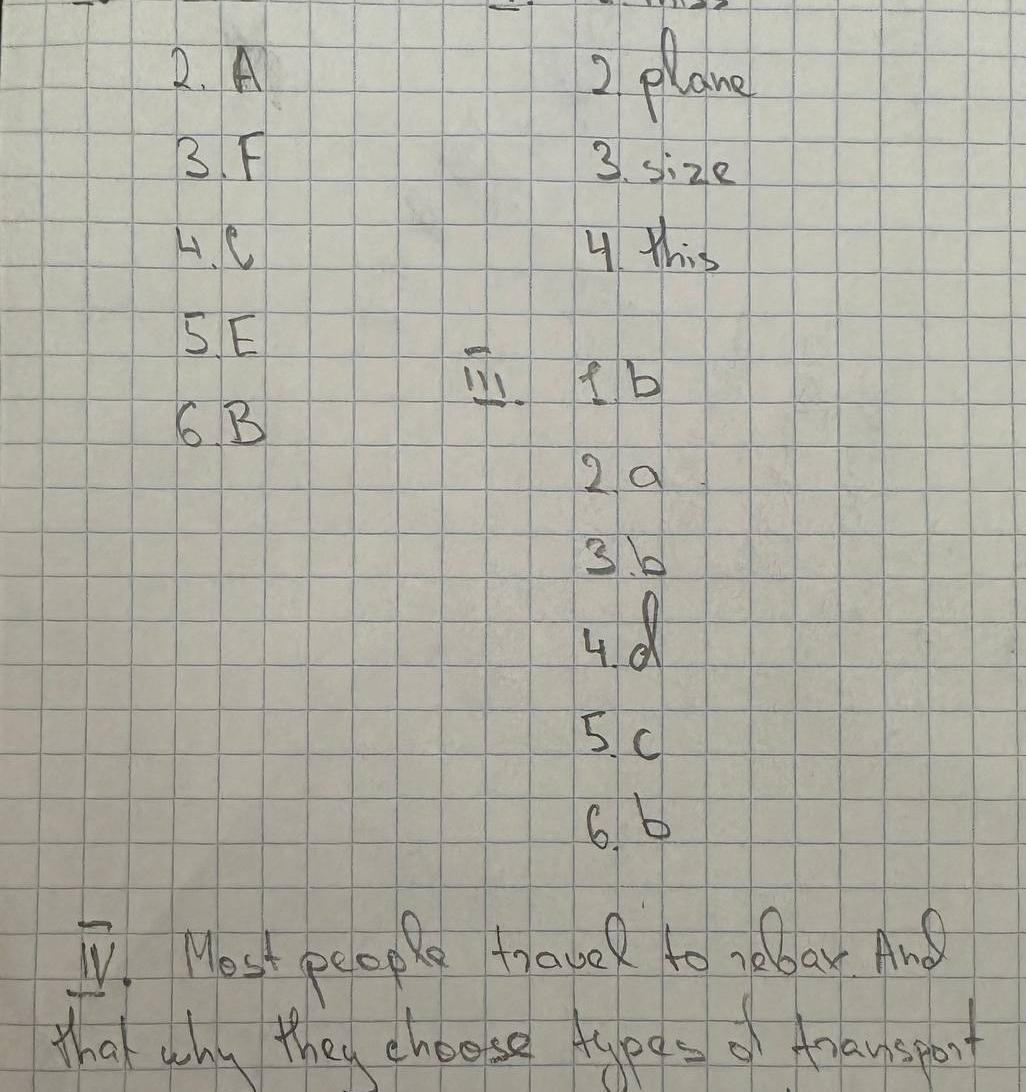 2. A
3. F
4. C
5. E
6. B
2. plane
3. size
4. this
III. 1. b
2. a
3. b
4. d
5. c
6. b
IV. Most people travel to relax. And
that why they choose types of transport